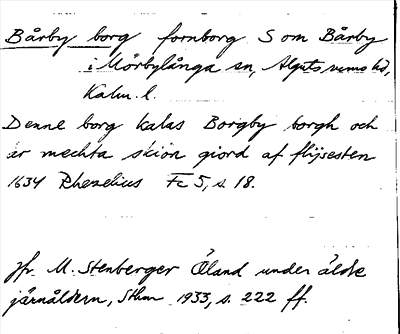 Bårby borg fornborg S om Bårby
i Mörbylånga sn, Algutsrums hd,
Kalm. l.
Denne borg kalas Borgby borgh och
är mechta skiön giord af flijsesten
1634 Rhezelius Fc 5, s. 18.
Jfr. M. Stenberger Öland under äldre
järnåldern, Sthm 1933, s. 222 ff.